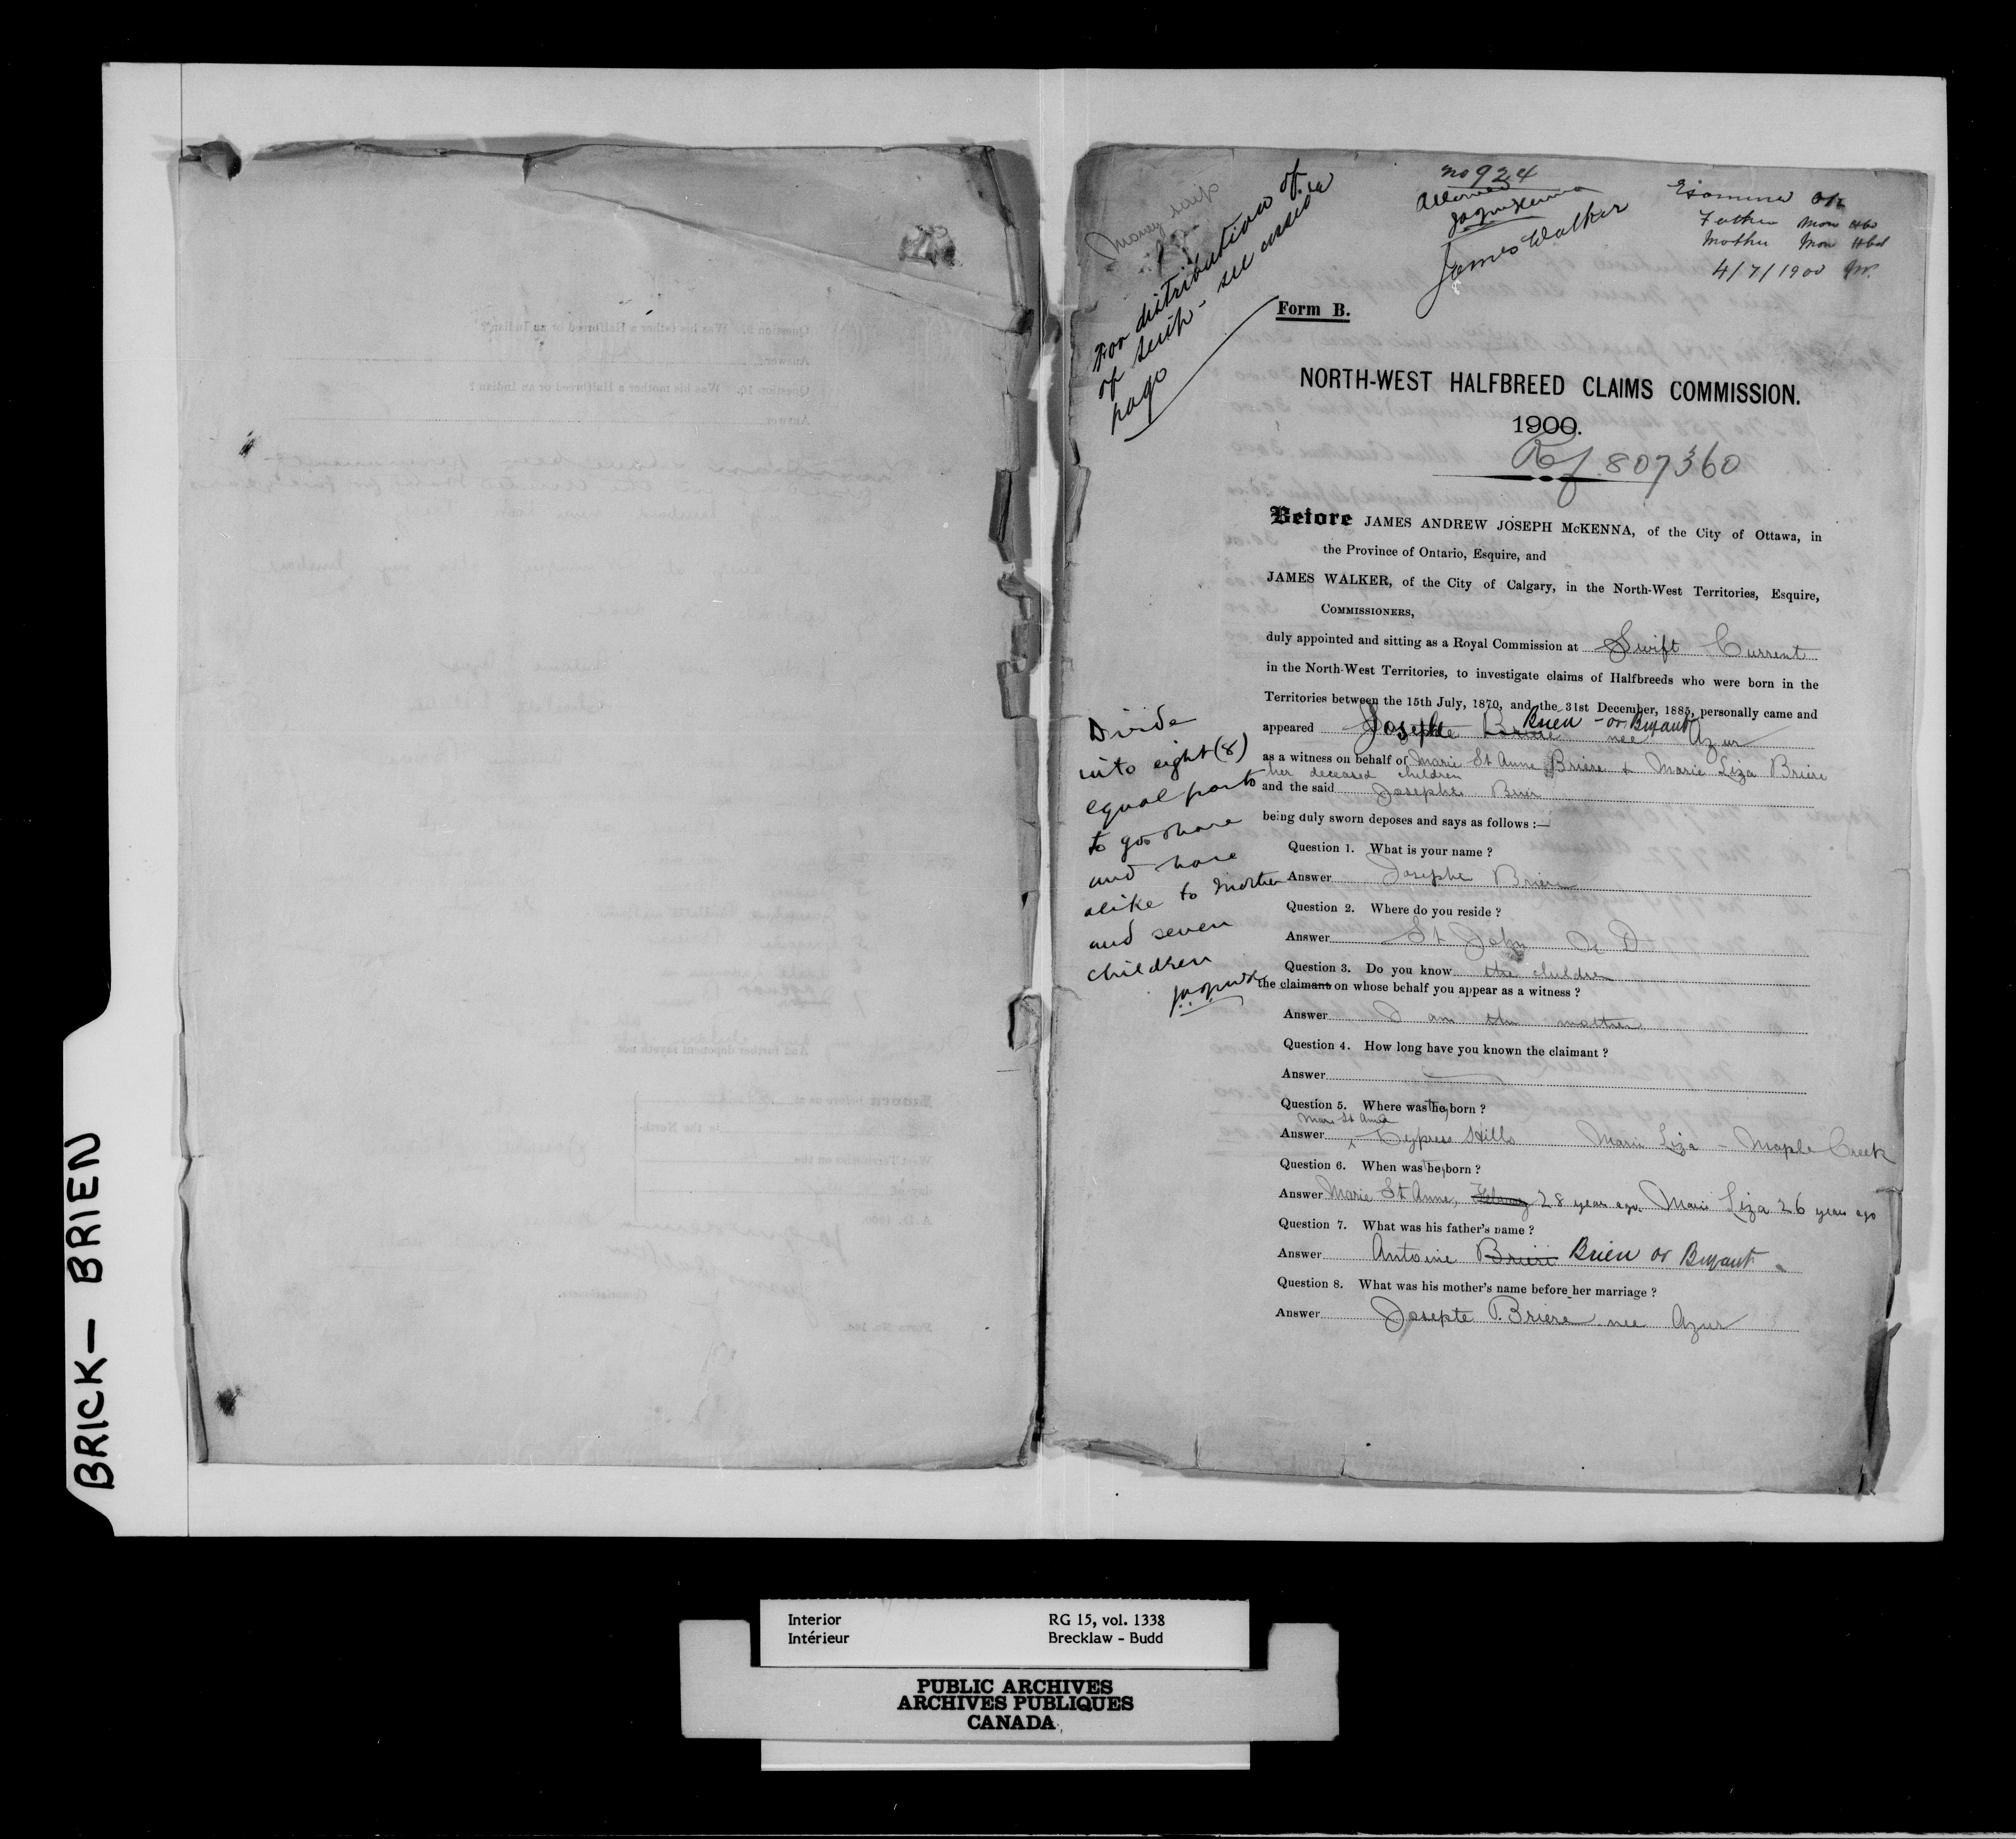 BRICK— BRIEN
no 924
Allowed
James Walker
Examined OK
Father Mon Hbd
Mother Mon Hbd
4/7/1900
Money scrip
For distribution of
of scrip - see
page
Form B.
NORTH-WEST HALFBREED CLAIMS COMMISSION.
1900.
Ref 807360
Before JAMES ANDREW JOSEPH McKENNA, of the City of Ottawa, in
the Province of Ontario, Esquire, and
JAMES WALKER, of the City of Calgary, in the North-West Territories, Esquire,
COMMISSIONERS,
duly appointed and sitting as a Royal Commission at Swift Current
in the North-West Territories, to investigate claims of Halfbreeds who were born in the
Territories between the 15th July, 1870, and the 31st December, 1885, personally came and
appeared Josephte Briere Brien - or Bryant nee Azur
as a witness on behalf of Marie St Anne Briere + Marie Liza Briere
her deceased children
and the said Josephte Brier
being duly sworn deposes and says as follows :—
Divide
into eight (8)
equal parts
to go share
and share
alike to Mother
and seven
children
Question 1. What is your name ?
Answer Josephte Briere
Question 2. Where do you reside ?
Answer St John N D
Question 3. Do you know the children
the claimant on whose behalf you appear as a witness ?
Answer I am the mother
Question 4. How long have you known the claimant ?
Answer
Question 5. Where was they born ?
Marie St Anne
Answer Cypress Hills Marie Liza - Maple Creek
Question 6. When was they born ?
Answer Marie St Anne, February 28 years ago. Marie Liza 26 years ago
Question 7. What was his father's name ?
Answer Antoine Briere Brien or Bryant
Question 8. What was his mother's name before her marriage ?
Answer Josepte Briere nee Azur
Interior RG 15, vol. 1338
Intérieur Brecklaw - Budd
PUBLIC ARCHIVES
ARCHIVES PUBLIQUES
CANADA